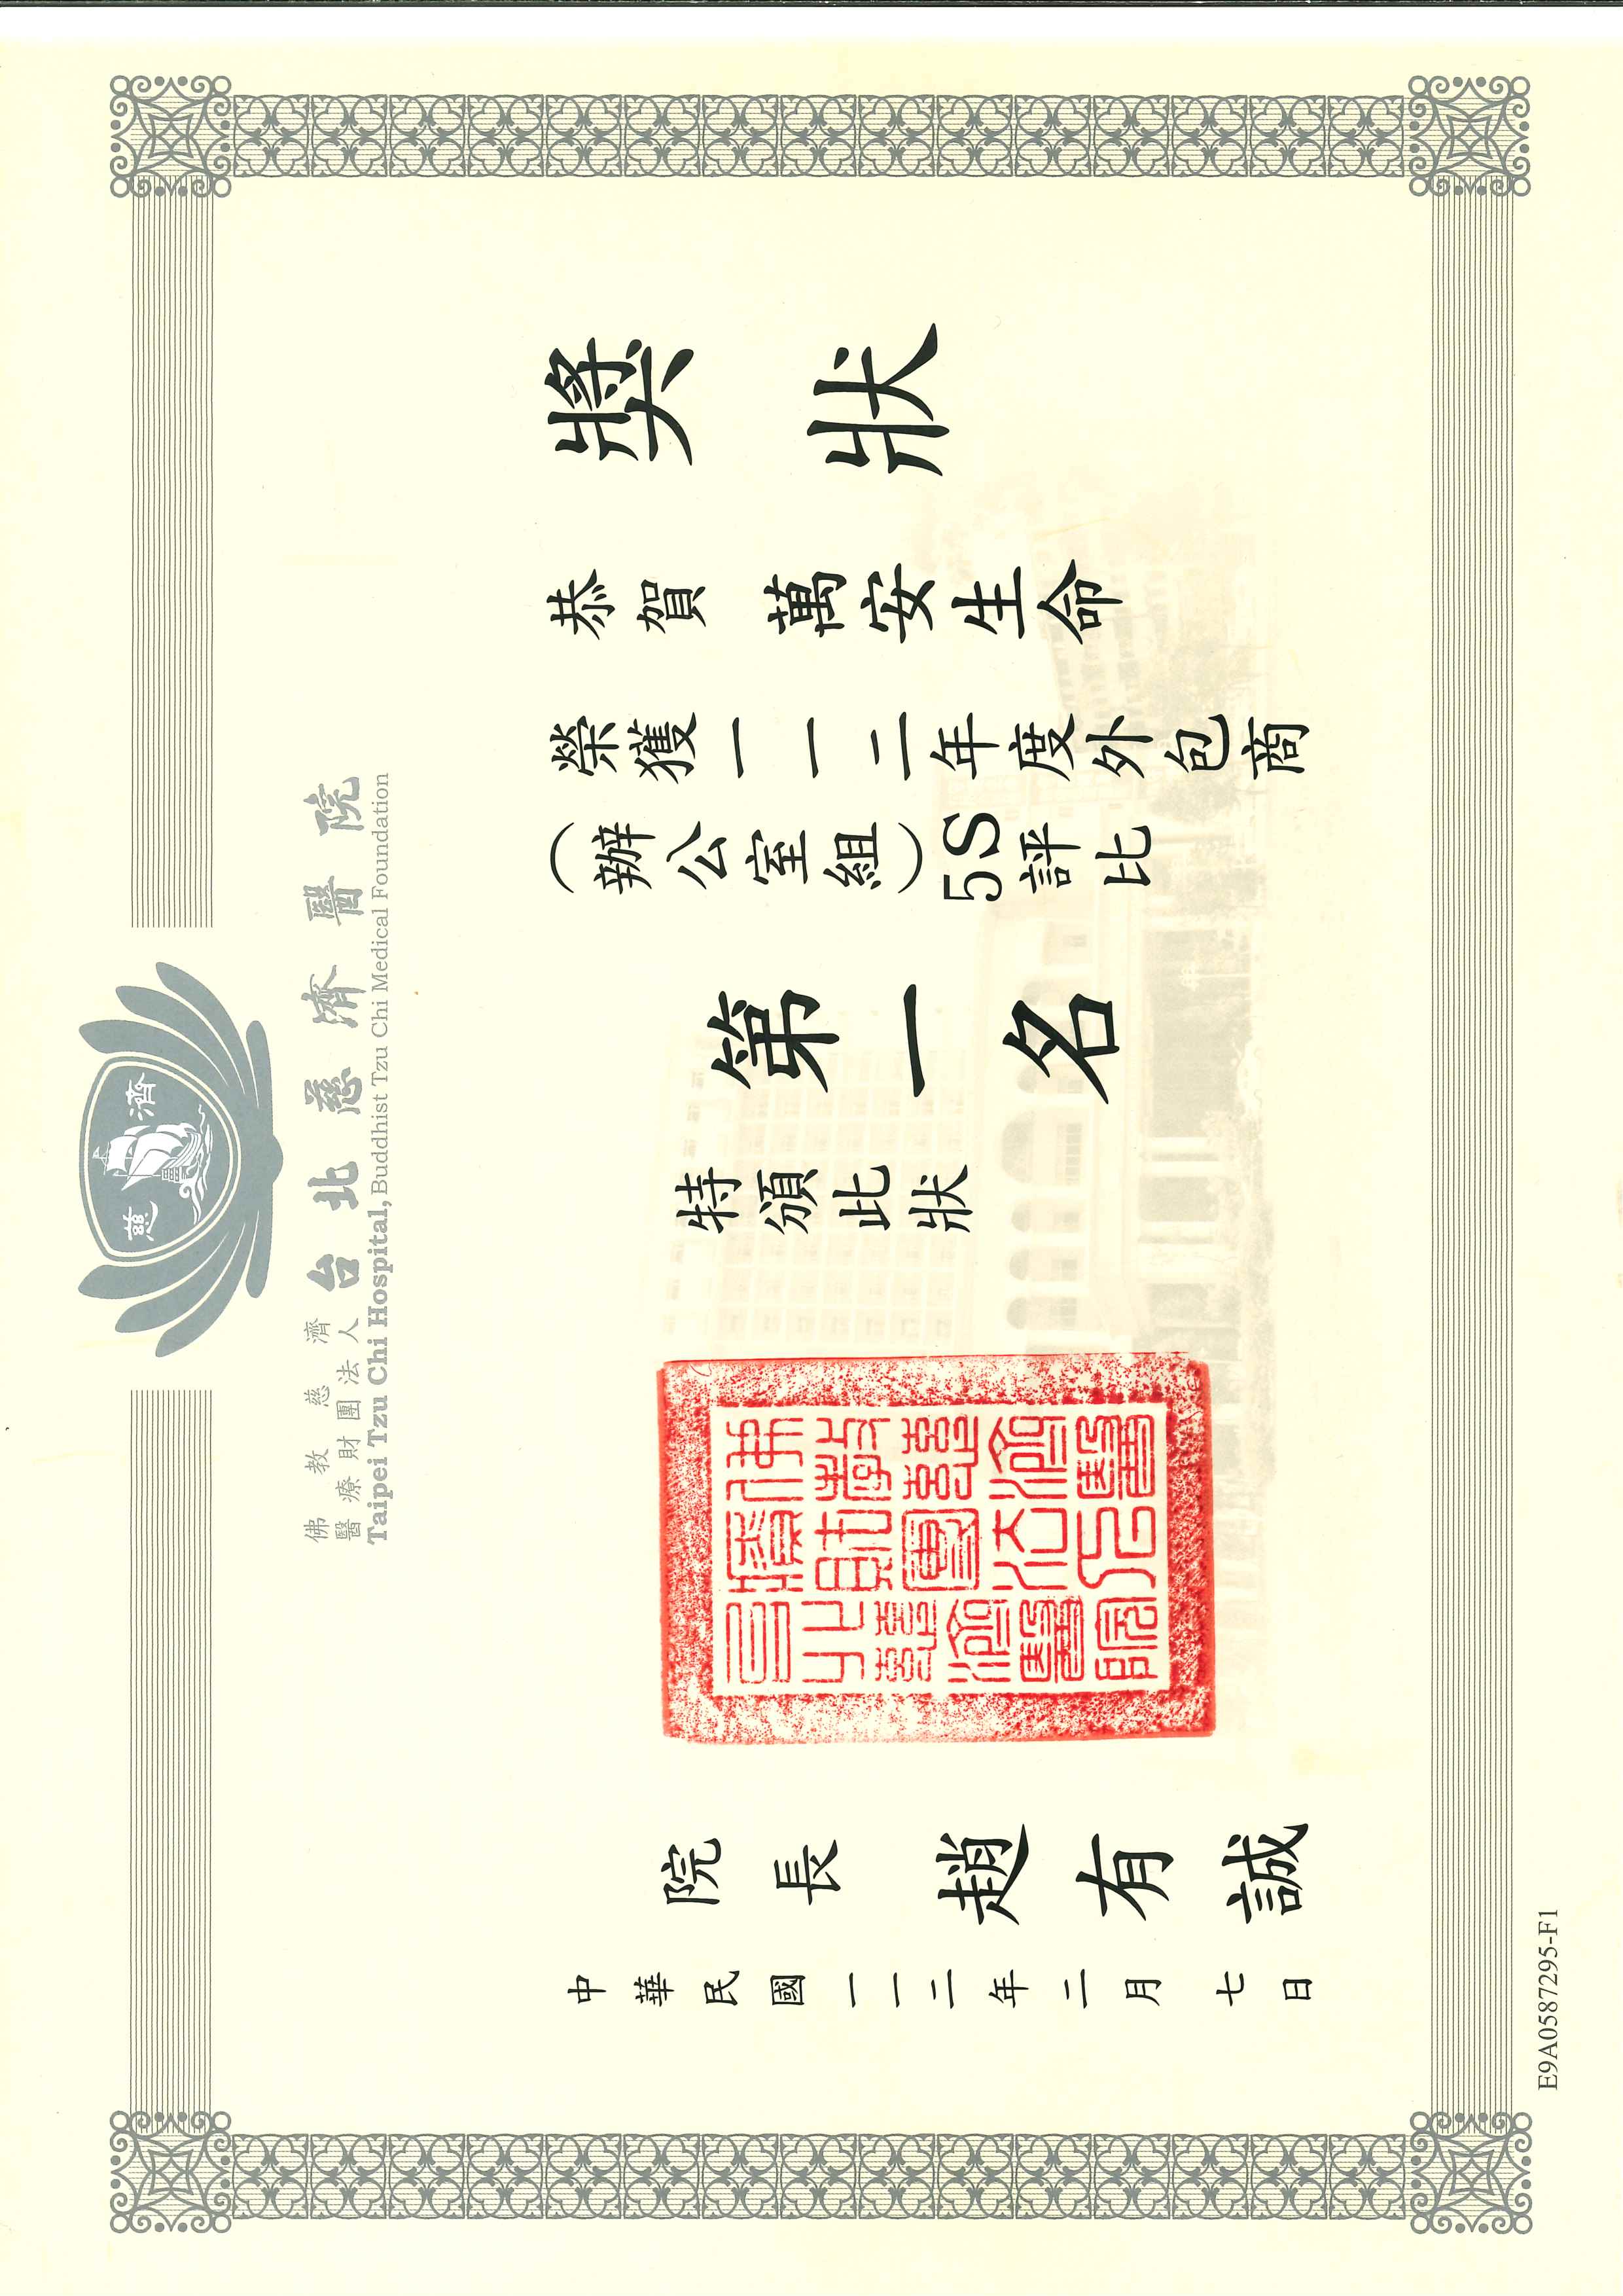 慈濟
佛教慈濟
醫療財團法人
台北慈濟醫院
Taipei Tzu Chi Hospital, Buddhist Tzu Chi Medical Foundation
獎狀
恭賀 萬安生命
榮獲一一二年度外包商
(辦公室組)5S評比
第一名
特頒此狀
佛教慈濟醫
療財團法人
台北慈濟醫院
院長 趙有誠
中華民國一一二年二月七日
E9A0587295-F1